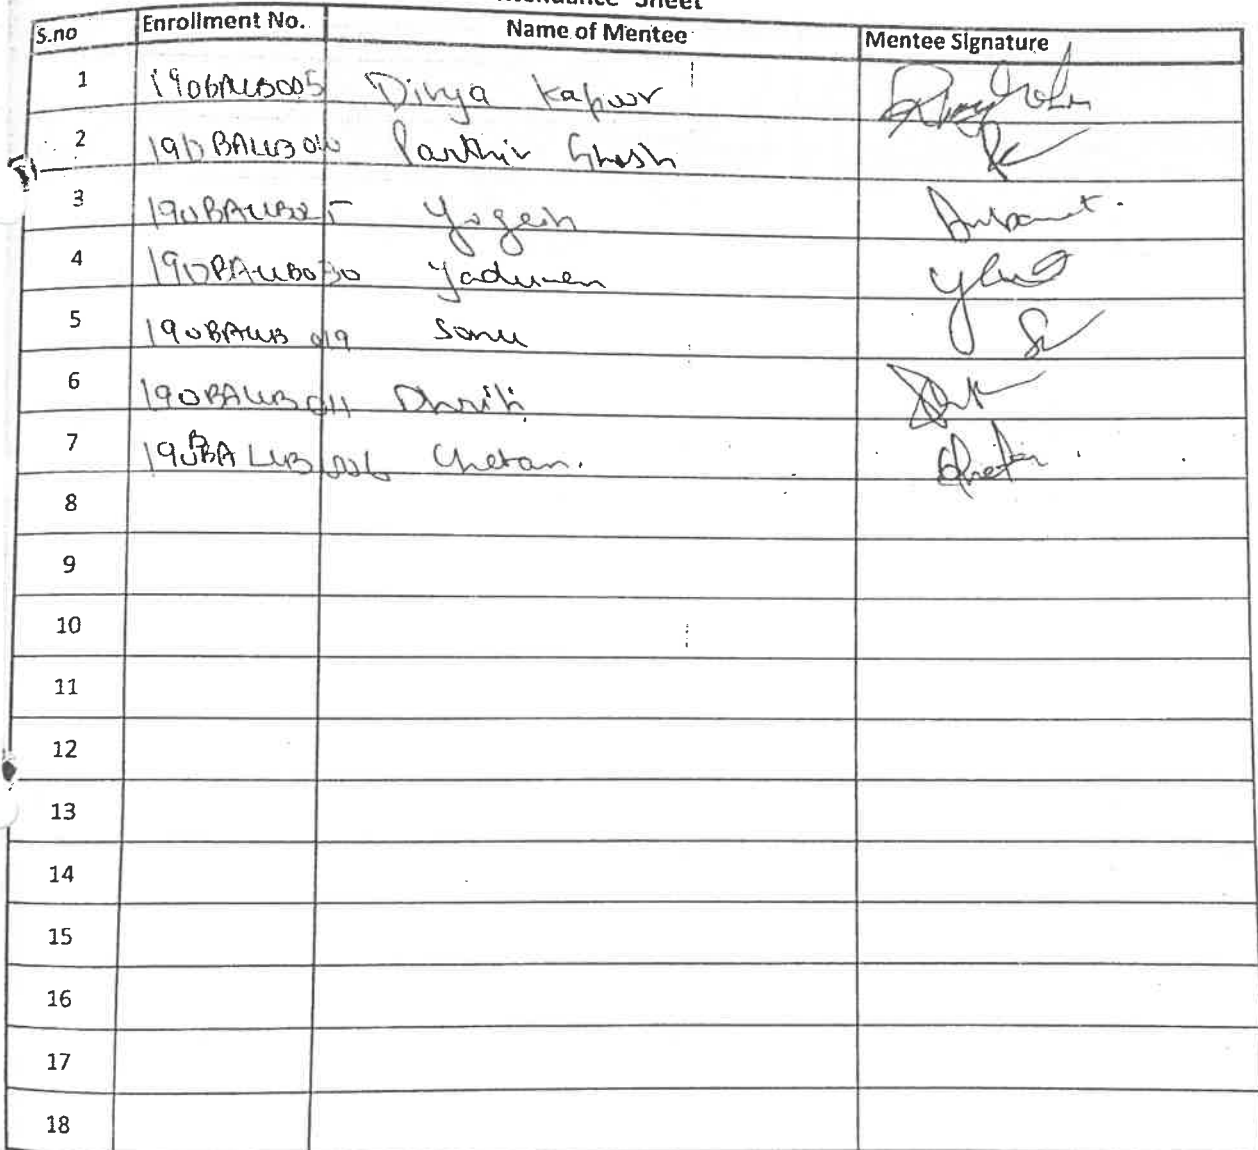 Attendance Sheet
S.no Enrollment No. Name of Mentee Mentee Signature
1 190BALLB005 Divya Kapoor
2 190BALLB010 Parthiv Ghosh
3 190BALLB025 Yogesh
4 190BALLB030 Yaduven
5 190BALLB 019 Sonu
6 190BALLB011 Dhriti
7 190BALLB006 Chetan.
8
9
10
11
12
13
14
15
16
17
18